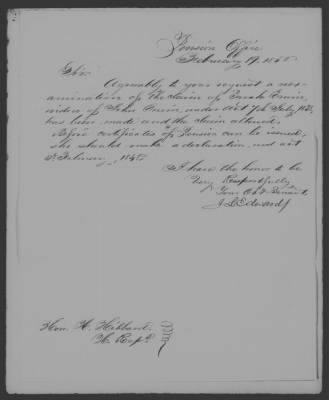 Pension Office
February 19, 1848
Sir:
Agreeably to your request a rex-
amination of the claim of Sarah
widow of John under act 7th July 1838,
has been made and the claim allowed.
Before certificates of Pension can be issued,
she should make a declaration, und act
2d February, 1848.
I have the honor to be
Very Respectfully
Your Obt Servant
J L Edwards
Hon. H. Hibbard,
H. Reps.